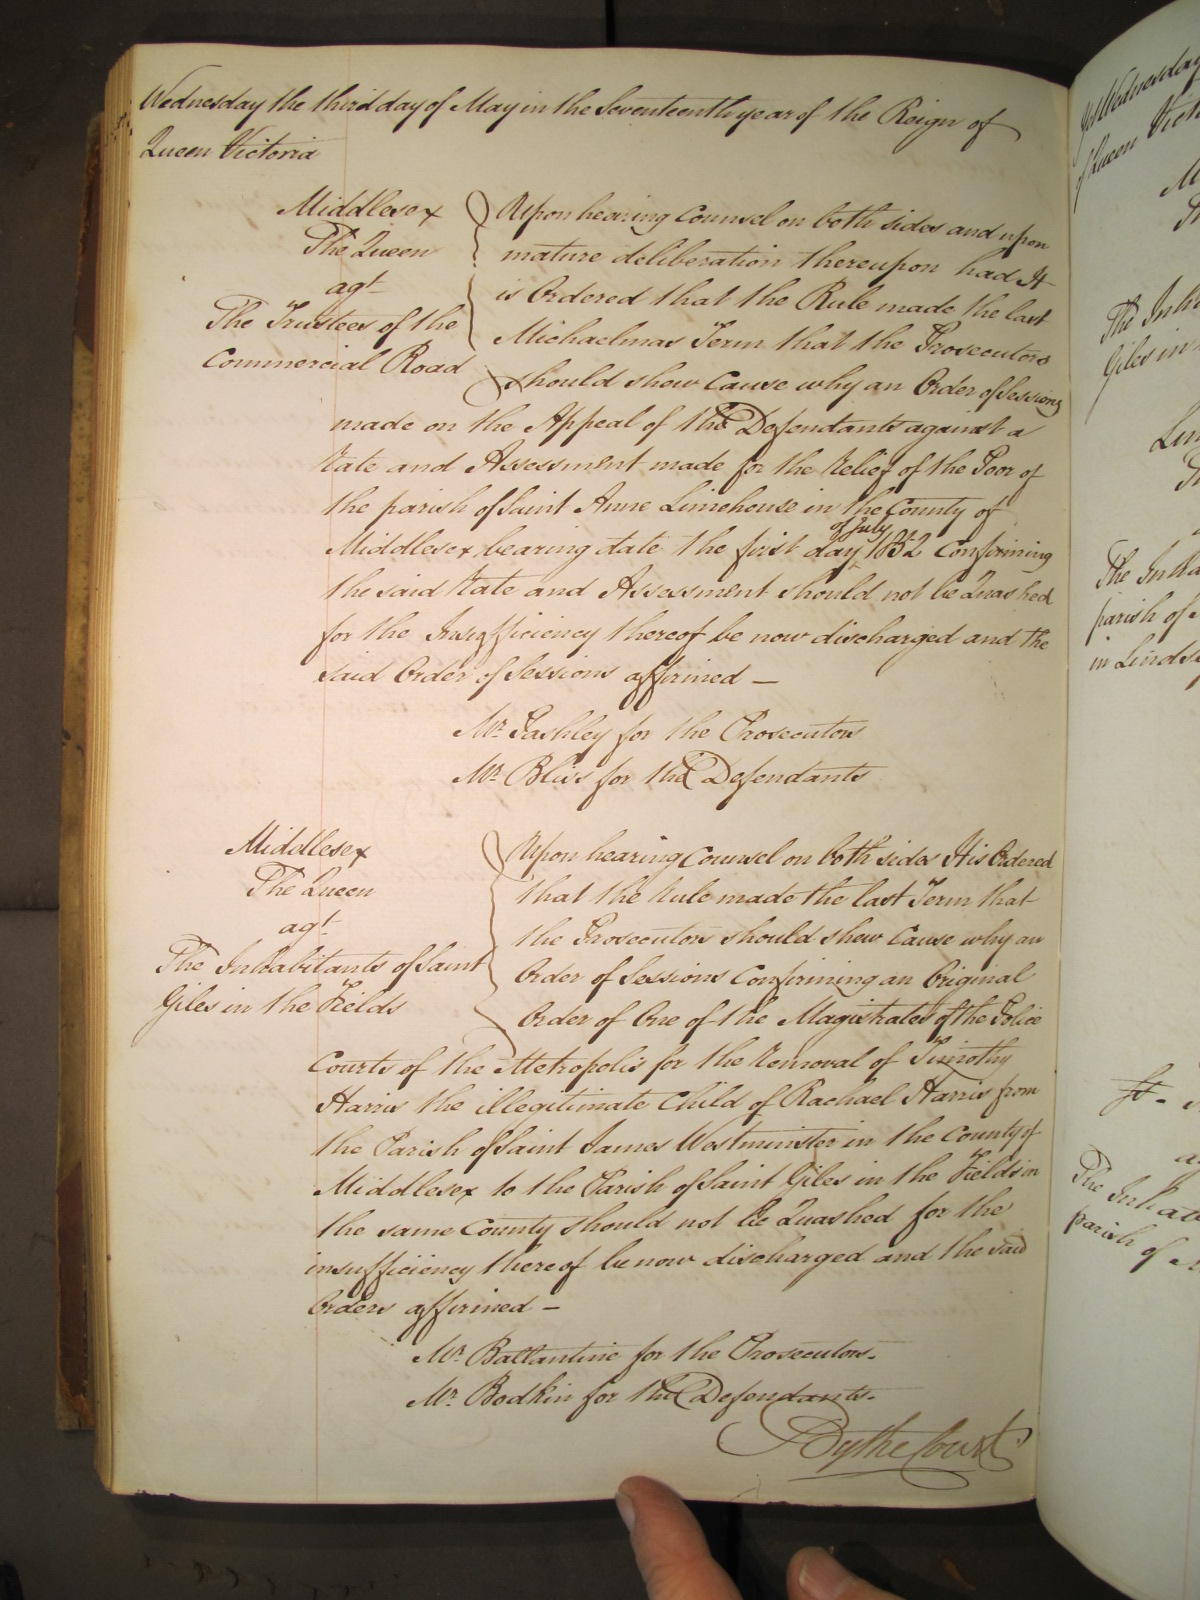 Wednesday the third day of May in the Seventeenth year of the Reign of
Queen Victoria
Middlesex
The Queen
agt
The Trustees of the
Commercial Road
Upon hearing Counsel on both sides and upon
mature deliberation thereupon had It
is Ordered that the Rule made the last
Michaelmas Term that the Prosecutors
should shew Cause why an Order of Sessions
made on the Appeal of the Defendants against a
Rate and Assessment made for the Relief of the Poor of
the parish of Saint Anne Limehouse in the County of
Middlesex bearing date the first day of July 1852 Confirming
the said Rate and Assessment should not be Quashed
for the Insufficiency thereof be now discharged and the
said Order of Sessions affirmed —
Mr. Pashley for the Prosecutors
Mr. Bliss for the Defendants
Middlesex
The Queen
agt
The Inhabitants of Saint
Giles in the Fields
Upon hearing Counsel on both sides It is Ordered
that the Rule made the last Term that
the Prosecutors should shew Cause why an
Order of Sessions Confirming an Original
Order of One of the Magistrates of the Police
Courts of the Metropolis for the Removal of Timothy
Harris the illegitimate Child of Rachael Harris from
the Parish of Saint James Westminster in the County of
Middlesex to the Parish of Saint Giles in the Fields in
the same County should not be Quashed for the
insufficiency thereof be now discharged and the said
Orders affirmed —
Mr. Ballantine for the Prosecutors.
Mr. Bodkin for the Defendants.
By the Court
Wednesday
of Queen
The
Giles in
The
parish of
in
The
parish of